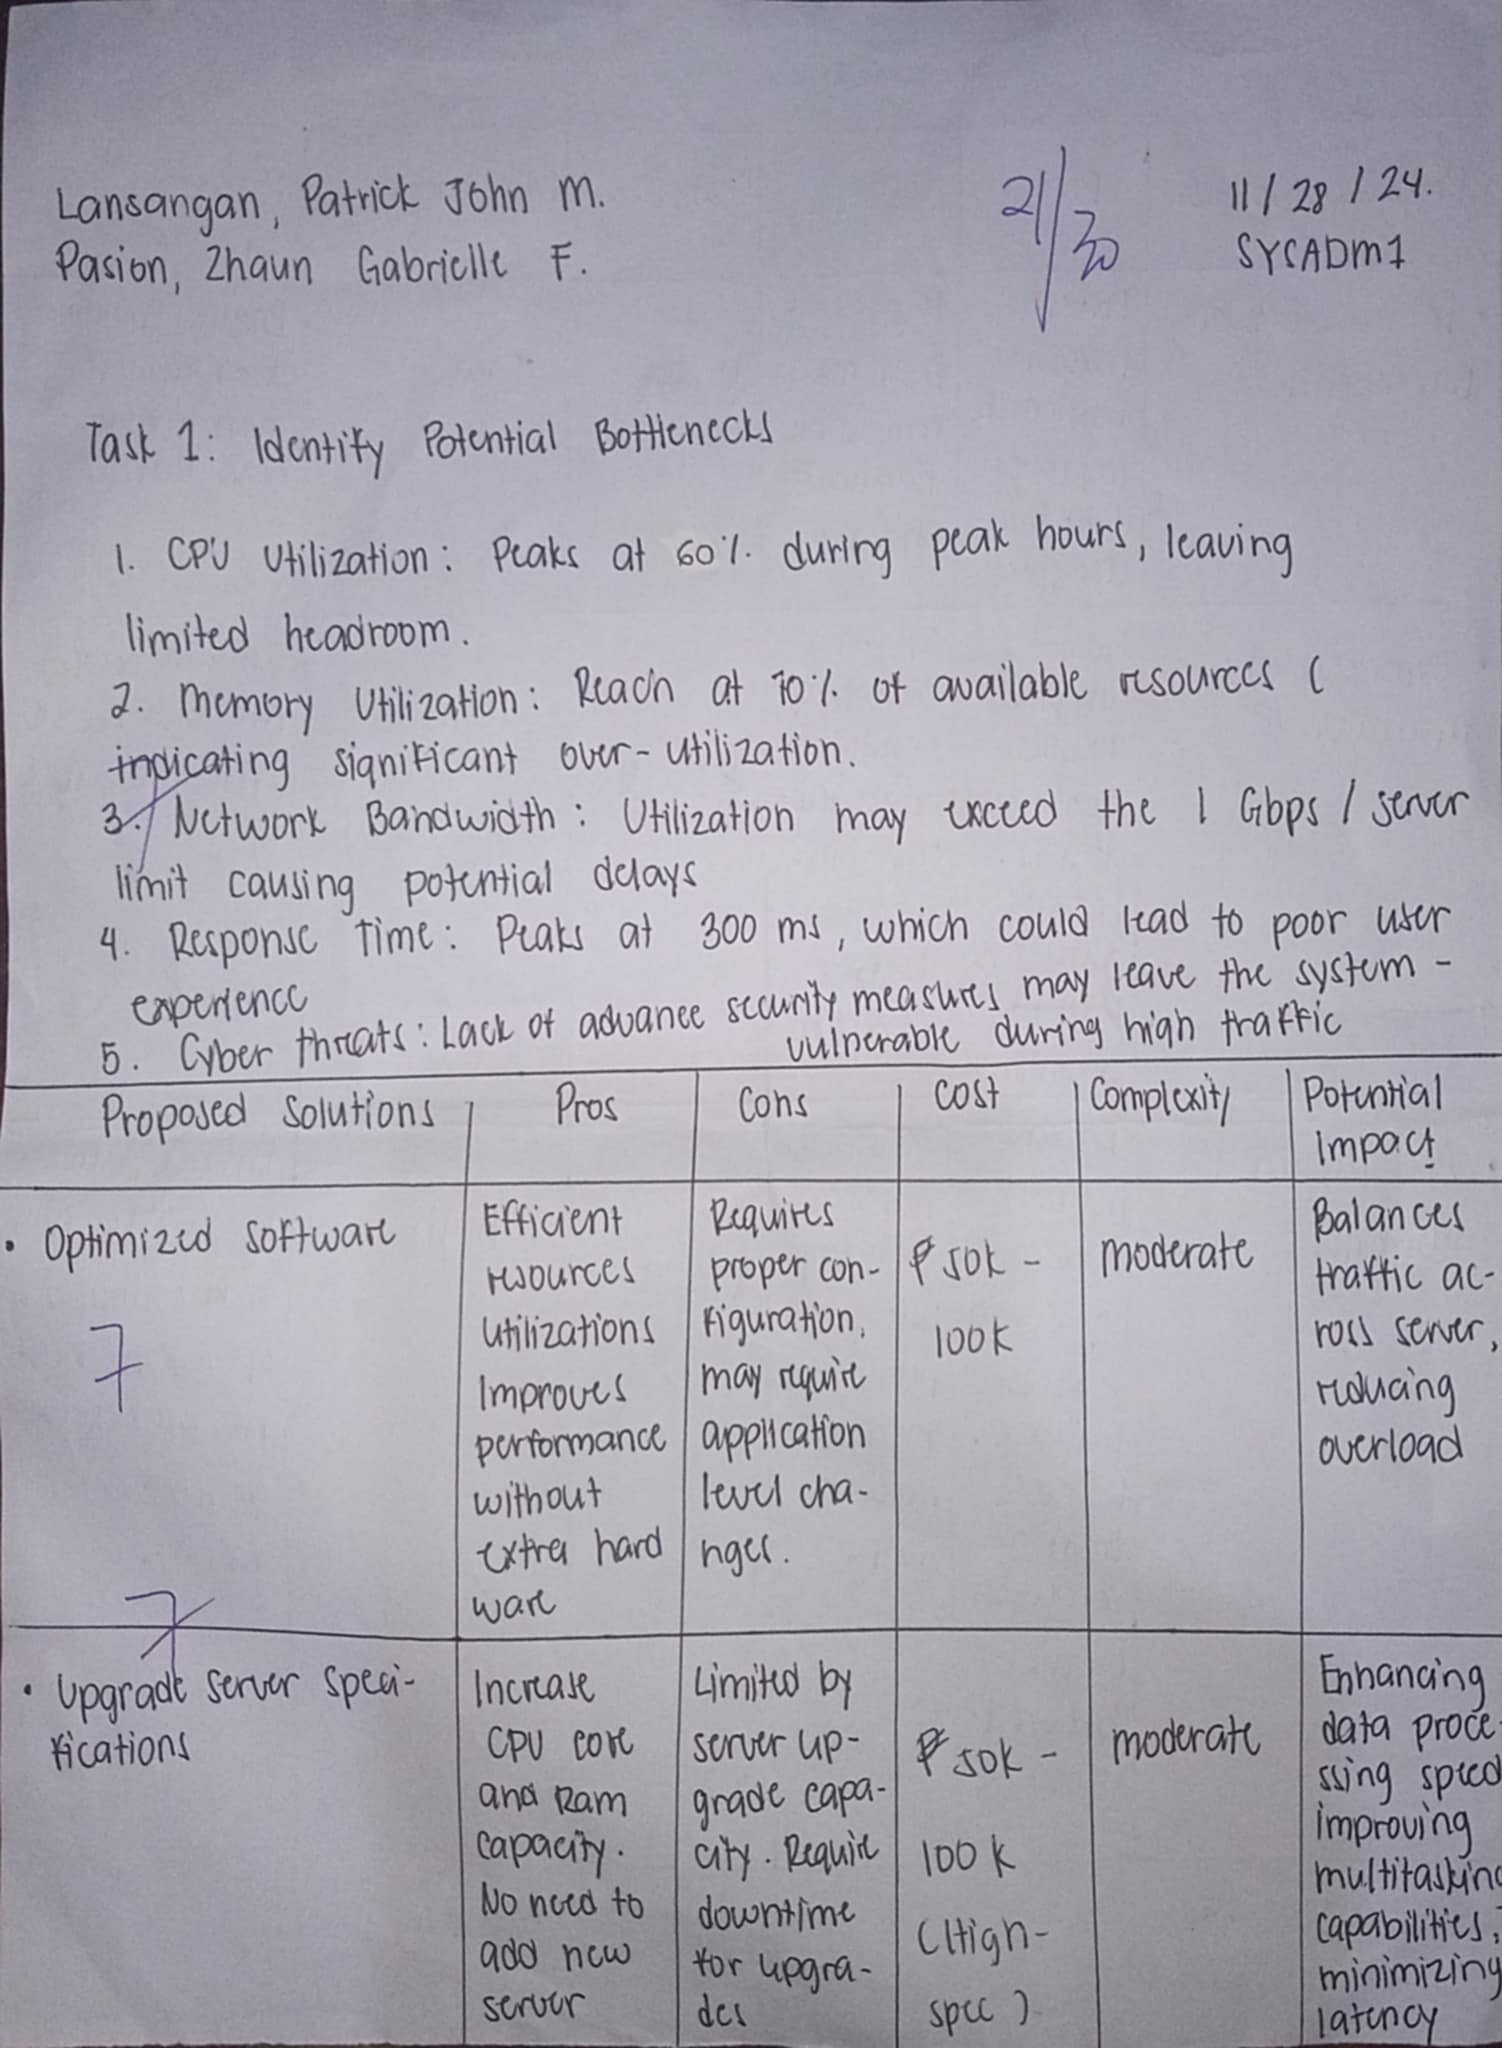 Lansangan, Patrick John M.
Pasion, Zhaun Gabrielle F.
21/30
11/28/24.
SYSADM1
Task 1: Identify Potential Bottlenecks
1. CPU Utilization: Peaks at 60% during peak hours, leaving
limited headroom.
2. Memory Utilization: Reach at 70% of available resources (
indicating significant over-utilization.
3. Network Bandwidth: Utilization may exceed the 1 Gbps / server
limit causing potential delays
4. Response Time: Peaks at 300 ms, which could lead to poor user
experience
5. Cyber threats: Lack of advance security measures may leave the system -
vulnerable during high traffic
Proposed Solutions
Pros
Cons
Cost
Complexity
Potential
Impact
• Optimized Software
7
Efficient
resources
utilizations
Improves
performance
without
extra hard
ware
Requires
proper con-
figuration,
may require
application
level cha-
nges.
₱50k -
100k
moderate
Balances
traffic ac-
ross server,
reducing
overload
7
• Upgrade Server Speci-
fications
Increase
CPU core
and Ram
capacity.
No need to
add new
server
Limited by
server up-
grade capa-
city. Require
downtime
for upgra-
des
₱50k -
100k
(High-
spec)
moderate
Enhancing
data proce-
ssing speed
improving
multitasking
capabilities,
minimizing
latency